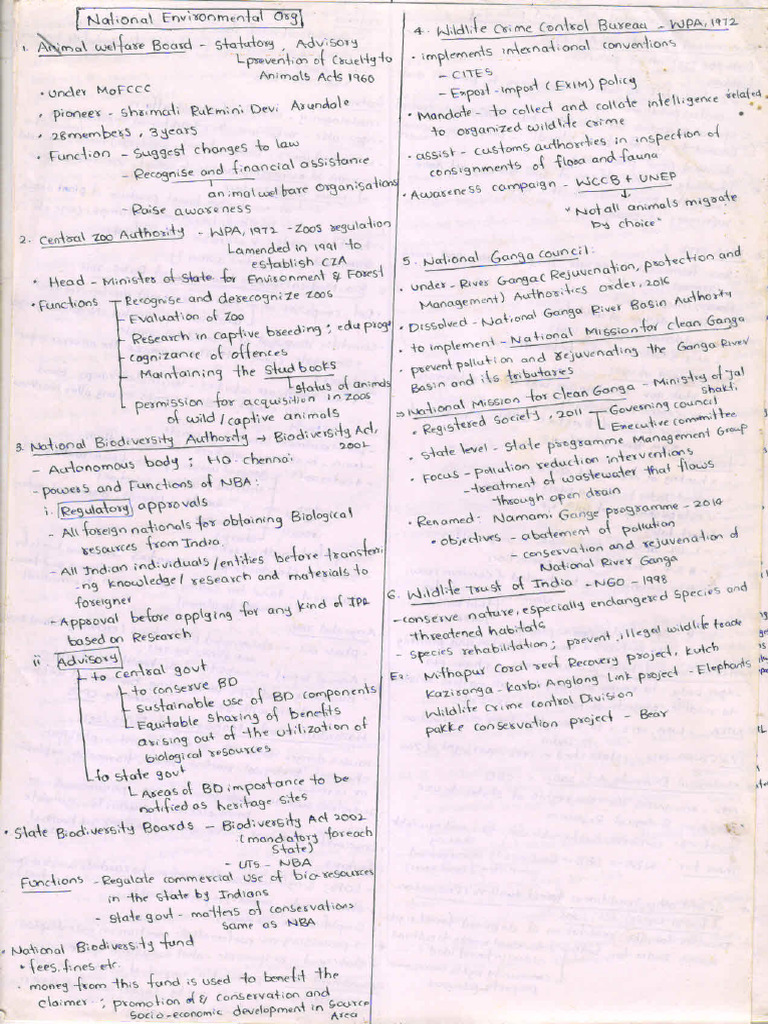 National Environmental Org
1. Animal welfare Board - statutory, Advisory
prevention of cruelty to
Animals Acts 1960
• under MoFCCC
• pioneer - shrimati Rukmini Devi Arundale
• 28 members, 3 years
• Function - Suggest changes to law
- Recognise and financial assistance
animal welfare organisations
- Raise awareness
2. Central Zoo Authority - WPA, 1972 - Zoos regulation
amended in 1991 to
establish CZA
• Head - Minister of State for Environment & Forest
• Functions - Recognise and derecognize zoos
- Evaluation of Zoo
- Research in captive breeding; edu progs
- cognizance of offences
- Maintaining the Stud books
status of animals
permission for acquisition in zoos
of wild / captive animals
3. National Biodiversity Authority → Biodiversity Act,
2002
- Autonomous body; HQ. chennai
- powers and Functions of NBA:
i. Regulatory approvals
- All foreign nationals for obtaining Biological
resources from India
- All Indian individuals/entities before transferri
-ng knowledge/ research and materials to
foreigner
- Approval before applying for any kind of IPR
based on Research
ii Advisory
to central govt
to conserve BD
sustainable use of BD components
Equitable sharing of benefits
arising out of the utilization of
biological resources
to state govt
Areas of BD importance to be
notified as heritage sites
• State Biodiversity Boards - Biodiversity Act 2002
(mandatory for each
State)
- UTs - NBA
Functions - Regulate commercial use of bio-resources
in the state by Indians
- State govt - matters of conservations
same as NBA
• National Biodiversity fund
• fees, fines etc.
• money from this fund is used to benefit the
claimer; promotion of & conservation and
socio-economic development in source
Area
4. Wildlife Crime Control Bureau - WPA, 1972
• implements international conventions
- CITES
- Export - Import (EXIM) policy
• Mandate - to collect and collate intelligence related
to organized wildlife crime
• assist - customs authorities in inspection of
consignments of flora and fauna
• Awareness campaign - WCCB + UNEP
↓
"Not all animals migrate
by choice"
5. National Ganga council:
• under - River Ganga (Rejuvenation, protection and
Management) Authorities order, 2016
• Dissolved - National Ganga River Basin Authority
• to implement - National Mission for Clean Ganga
• prevent pollution and rejuvenating the Ganga River
Basin and its tributaries
⇒ National Mission for clean Ganga - Ministry of Jal
shakti
• Registered Society, 2011 - Governing council
Executive committee
• State level - State programme Management Group
• Focus - pollution reduction interventions
- treatment of wastewater that flows
through open drain
• Renamed: Namami Gange programme - 2014
• objectives - abatement of pollution
- conservation and rejuvenation of
National River Ganga
6. Wildlife Trust of India - NGO - 1998
- conserve nature, especially endangered species and
threatened habitats
- species rehabilitation; prevent, illegal wildlife trade
Ex: Mithapur Coral reef Recovery project, kutch
Kaziranga - karbi Anglong Link project - Elephants
Wildlife Crime control Division
pakke conservation project - Bear